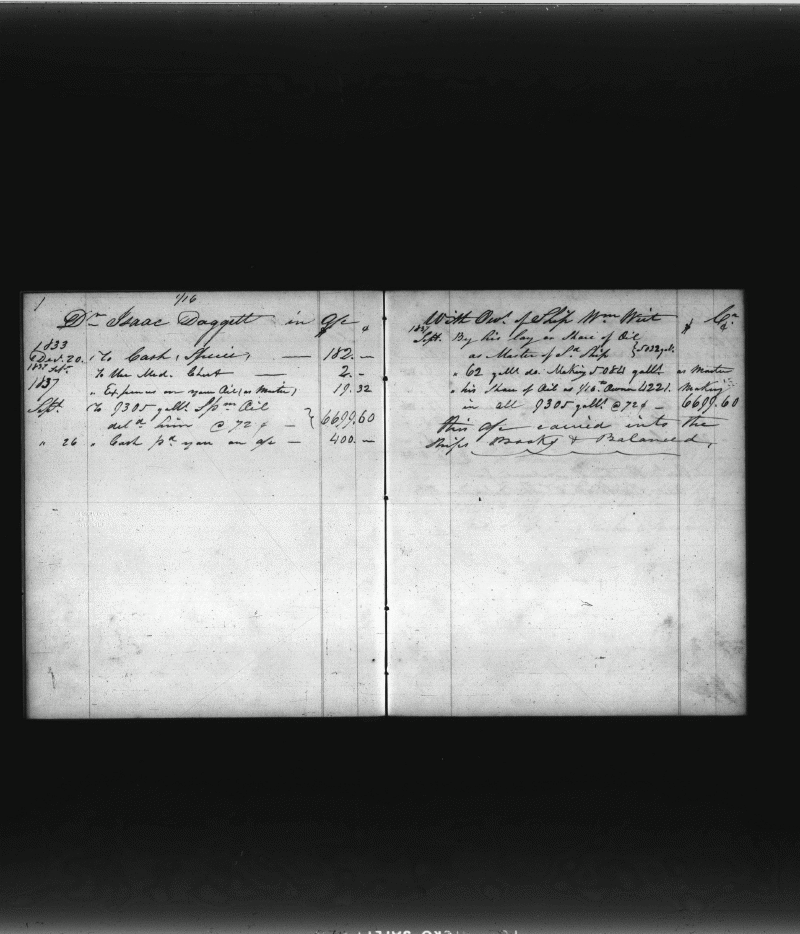 1 1/16
Dr Isaac Daggett in a/c $
1833
Dec. 20. To Cash, (Specie) — 182.—
To Use Med. Chest — 2.—
1837 " Expenses on your Oil (as Master) 19.32
Sept. To 9305 galls. Spm Oil
deld him @ 72¢ — } 6699.60
" 26 " Cash pd you on a/c — 400.—
With Ow. of Ship Wm Wirt $ Cr
1837
Sept. By his lay or Share of Oil
as Master of Sd Ship
" 62 galls do. Making 5084 galls. as Master
" his Share of Oil as 1/16th Owner 4221. Making
in all 9305 galls. @ 72¢ — 6699.60
this a/c carried into the
Ships Books & Balanced.